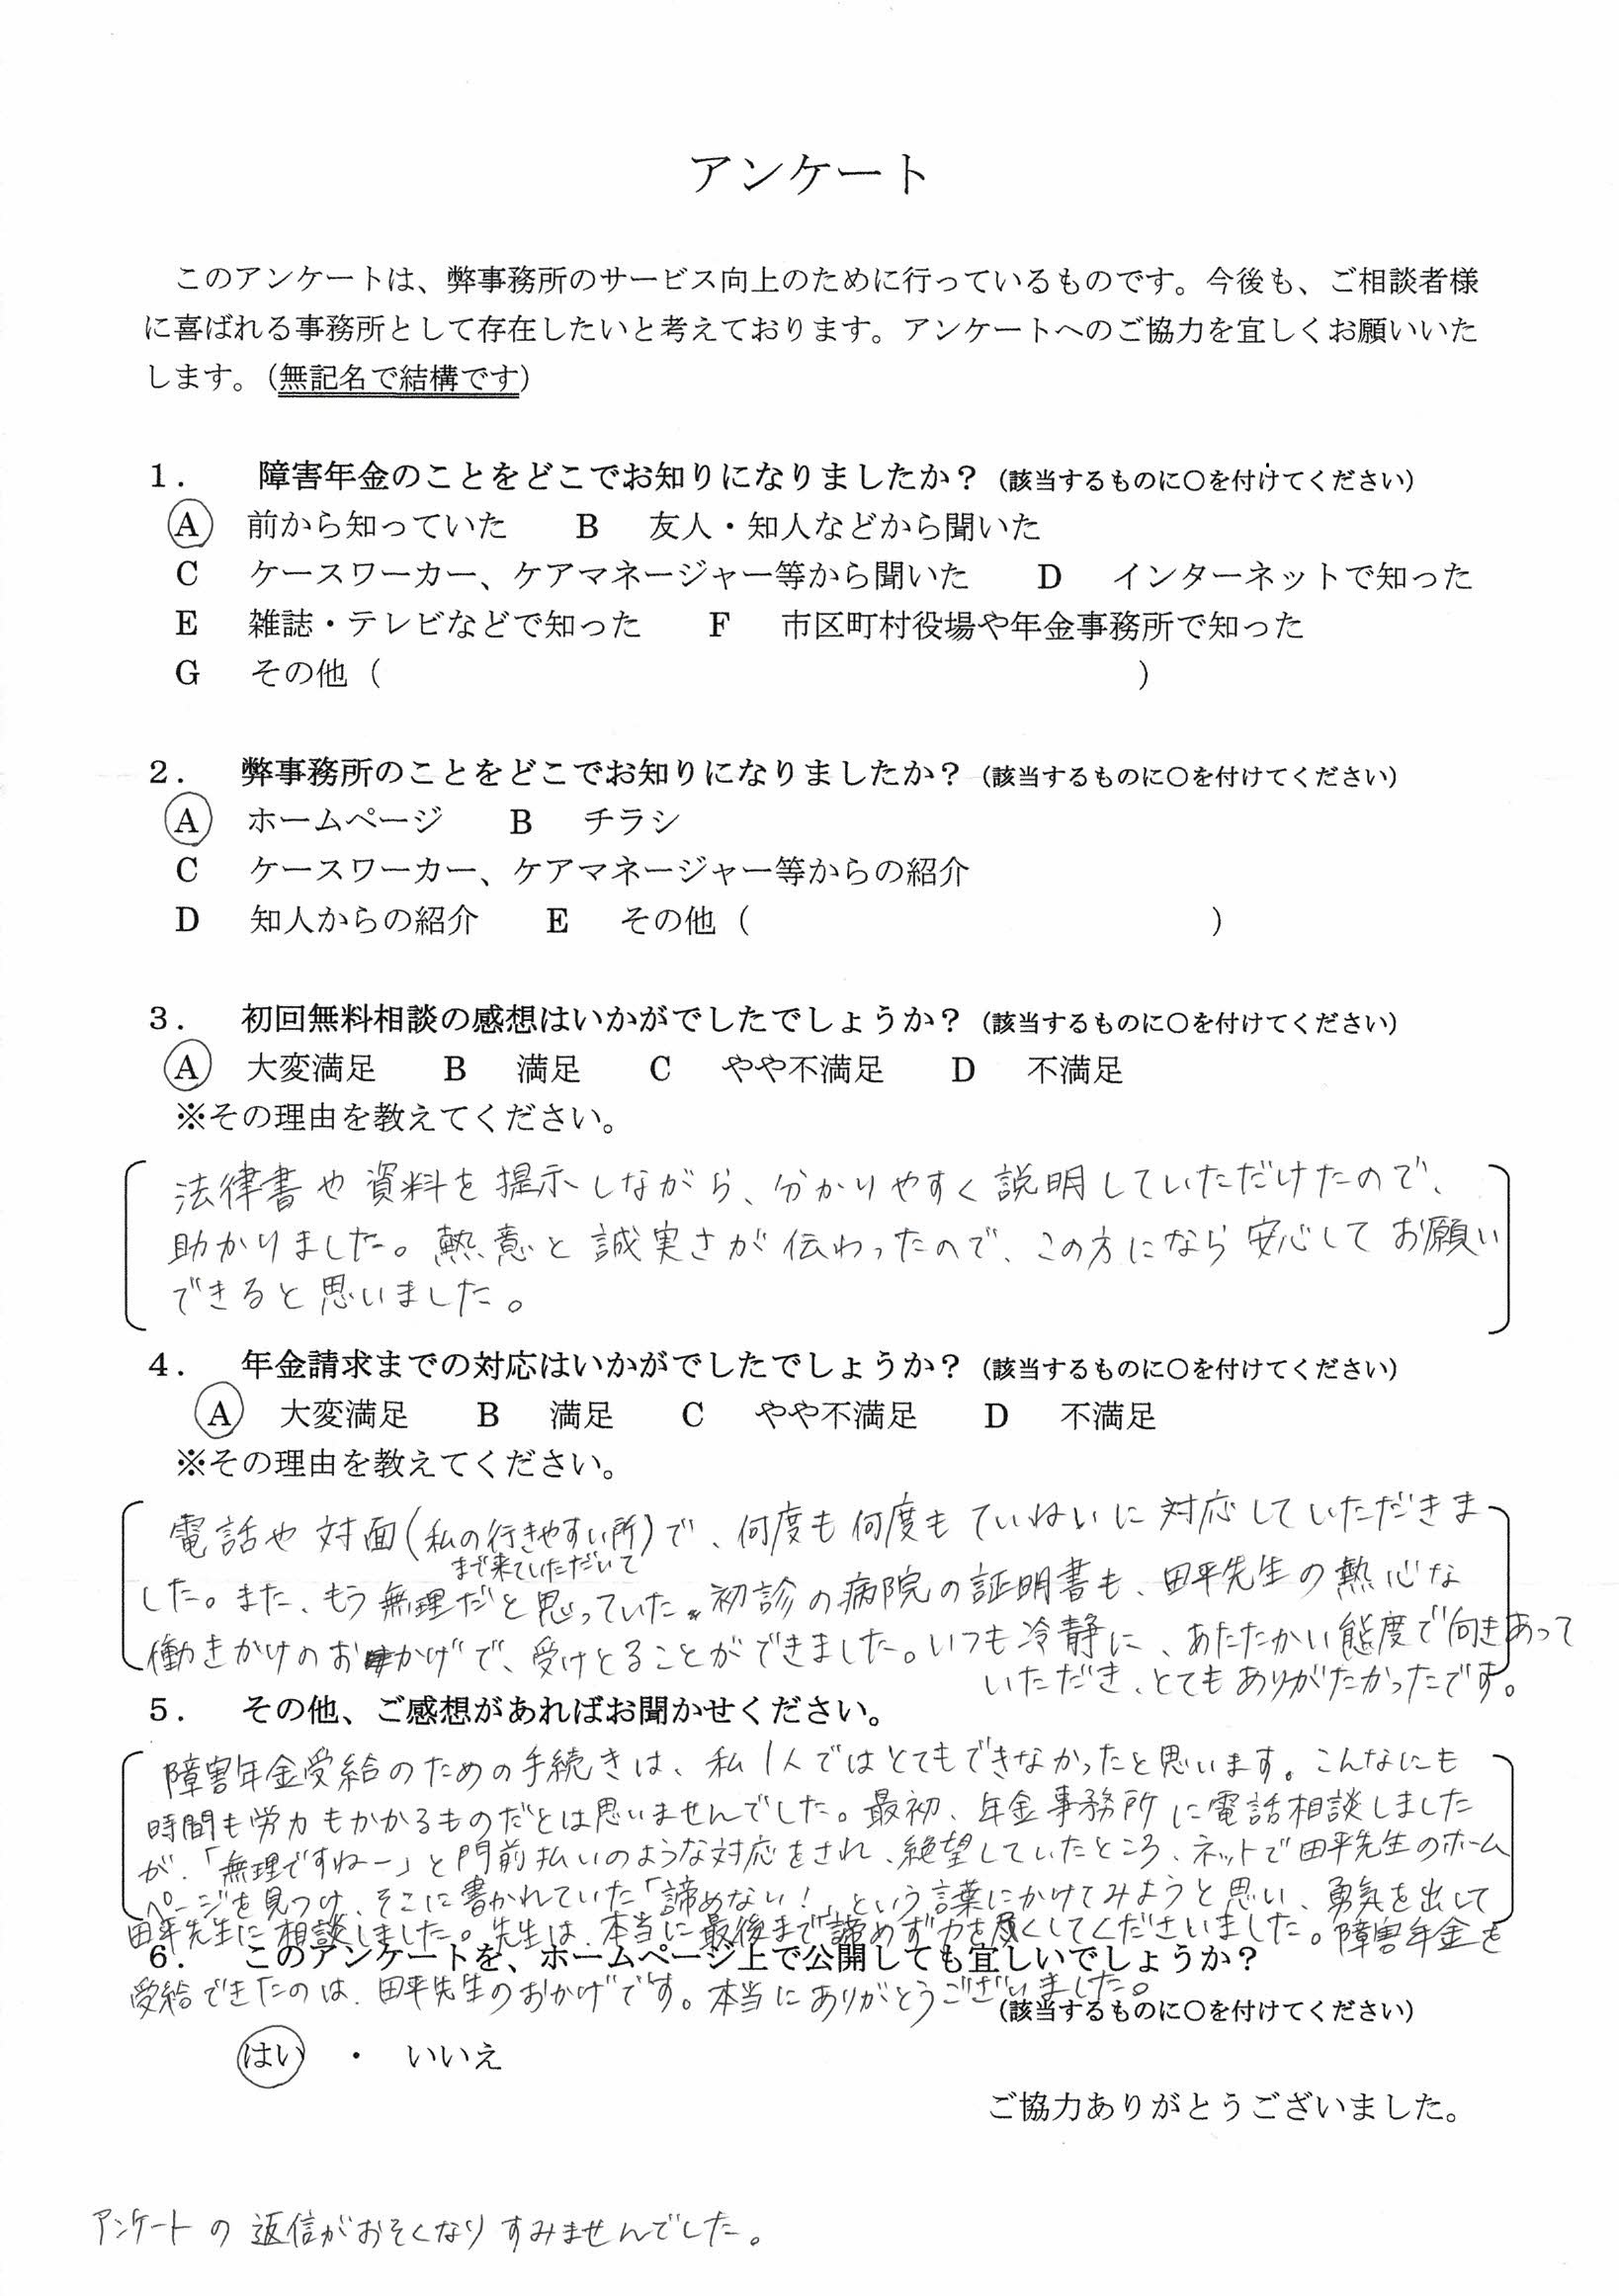 アンケート
このアンケートは、弊事務所のサービス向上のために行っているものです。今後も、ご相談者様
に喜ばれる事務所として存在したいと考えております。アンケートへのご協力を宜しくお願いいた
します。（無記名で結構です）
１． 障害年金のことをどこでお知りになりましたか？（該当するものに○を付けてください）
A 前から知っていた B 友人・知人などから聞いた
C ケースワーカー、ケアマネージャー等から聞いた D インターネットで知った
E 雑誌・テレビなどで知った F 市区町村役場や年金事務所で知った
G その他（ ）
２． 弊事務所のことをどこでお知りになりましたか？（該当するものに○を付けてください）
A ホームページ B チラシ
C ケースワーカー、ケアマネージャー等からの紹介
D 知人からの紹介 E その他（ ）
３． 初回無料相談の感想はいかがでしたでしょうか？（該当するものに○を付けてください）
A 大変満足 B 満足 C やや不満足 D 不満足
※その理由を教えてください。
法律書や資料を提示しながら、分かりやすく説明していただけたので、
助かりました。熱意と誠実さが伝わったので、この方になら安心してお願い
できると思いました。
４． 年金請求までの対応はいかがでしたでしょうか？（該当するものに○を付けてください）
A 大変満足 B 満足 C やや不満足 D 不満足
※その理由を教えてください。
電話や対面(私の行きやすい所)で、何度も何度もていねいに対応していただきま
まで来ていただいて
した。また、もう無理だと思っていた初診の病院の証明書も、田平先生の熱心な
働きかけのおかげで、受けとることができました。いつも冷静に、あたたかい態度で向きあって
いただき、とてもありがたかったです。
５． その他、ご感想があればお聞かせください。
障害年金受給のための手続きは、私1人ではとてもできなかったと思います。こんなにも
時間も労力もかかるものだとは思いませんでした。最初、年金事務所に電話相談しました
が、「無理ですねー」と門前払いのような対応をされ、絶望していたところ、ネットで田平先生のホーム
ページを見つけ、そこに書かれていた「諦めない！」という言葉にかけてみようと思い、勇気を出して
田平先生に相談しました。先生は、本当に最後まで諦めず力を尽くしてくださいました。障害年金を
６． このアンケートを、ホームページ上で公開しても宜しいでしょうか？
受給できたのは、田平先生のおかげです。本当にありがとうございました。
（該当するものに○を付けてください）
はい ・ いいえ
ご協力ありがとうございました。
アンケートの返信がおそくなりすみませんでした。